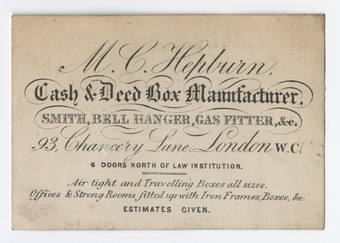 M. C. Hepburn,
Cash & Deed Box Manufacturer,
SMITH, BELL HANGER, GAS FITTER, &c.
93, Chancery Lane, London W.C.
6 DOORS NORTH OF LAW INSTITUTION.
Air tight and Travelling Boxes all sizes.
Offices & Strong Rooms fitted up with Iron Frames, Boxes, &c.
ESTIMATES GIVEN.